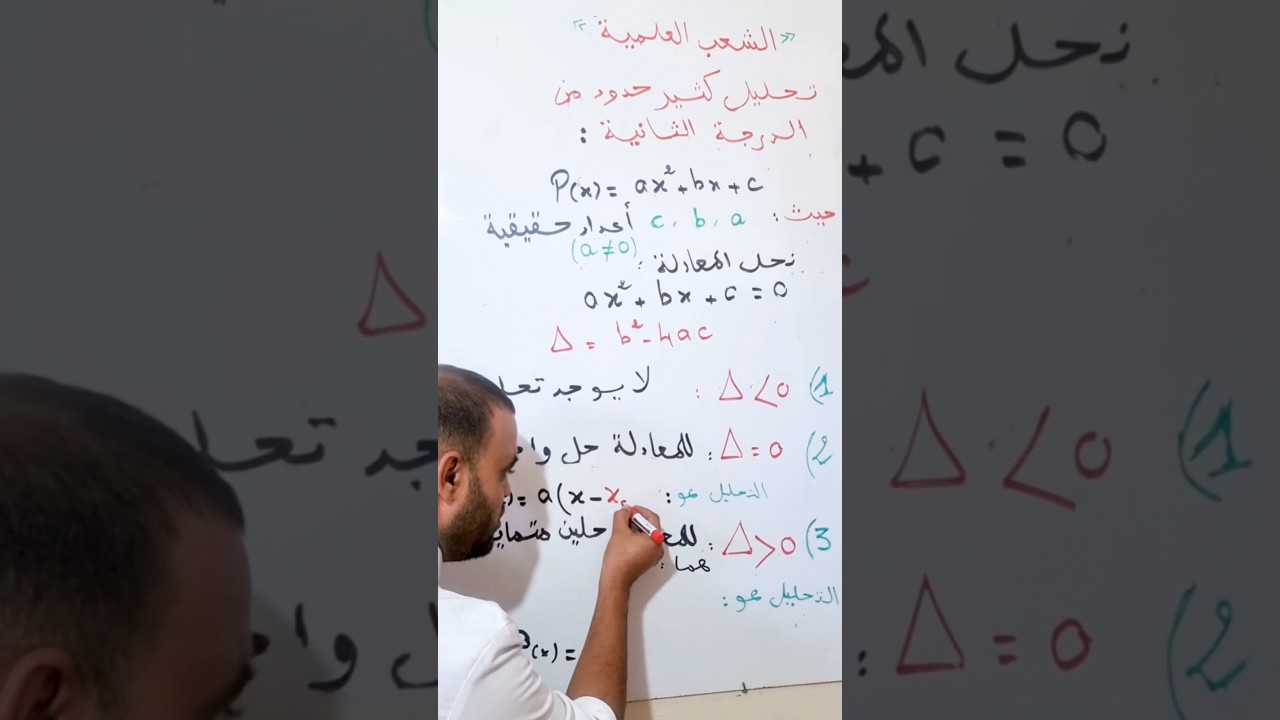 « الشعب العلمية »
تحليل كثير حدود من
الدرجة الثانية :
P(x) = ax²+bx+c
حيث : a ، b ، c أعداد حقيقية
(a≠0)
نحل المعادلة :
ax²+bx+c=0
Δ = b²-4ac
1) Δ<0 : لا يوجد
2) Δ=0 : للمعادلة حل
التحليل هو : = a(x-x
3) Δ>0 : حلين
هما :
التحليل هو :
(x) =